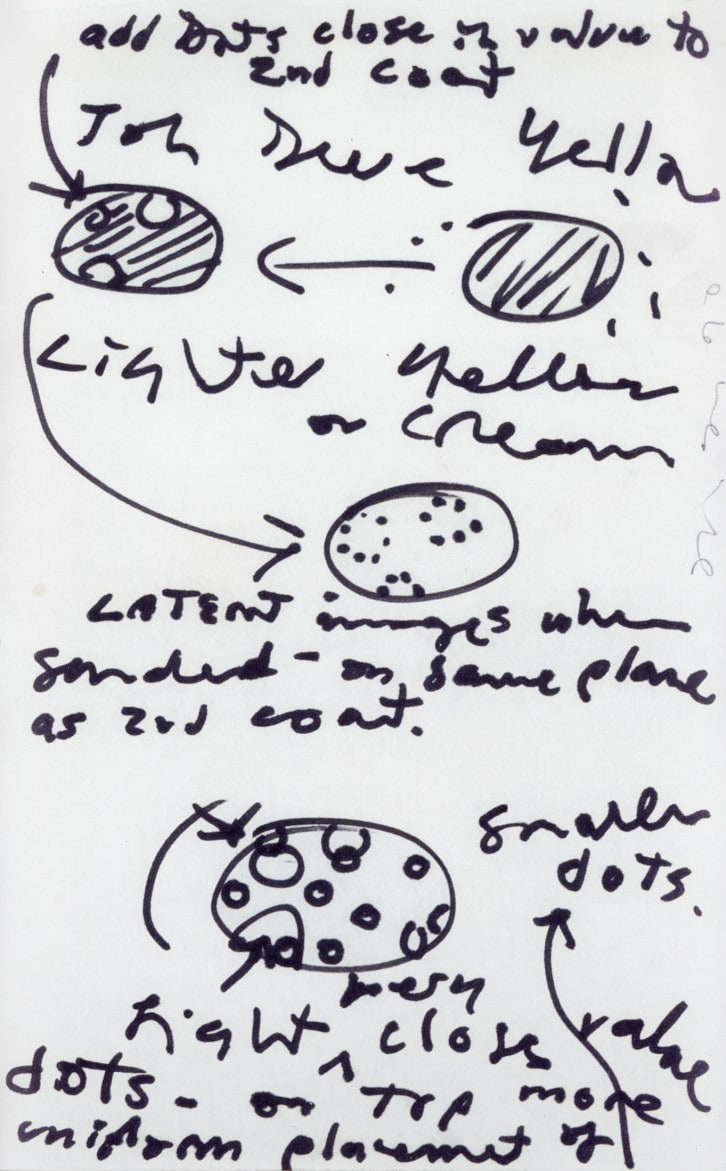 add Dots close in value to
2nd coat
Yello
Lighter Yellow
or Cream
LATENT images when
sanded - on same plane
as 2nd coat.
smaller
dots.
very
Light ^ close
value
dots - on top more
uniform placement of